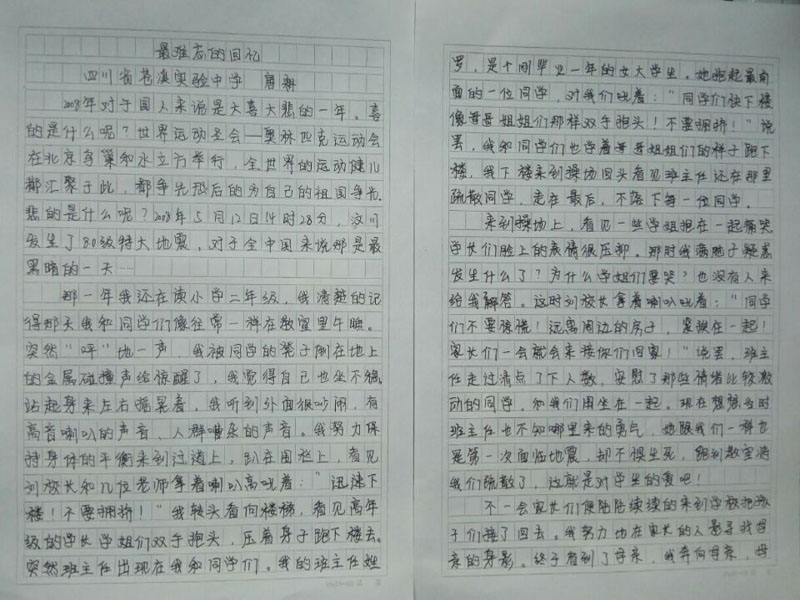 最难忘的回忆
四川省苍溪实验中学 唐
2008年对于国人来说是大喜大悲的一年。喜
的是什么呢?世界运动圣会—奥林匹克运动会
在北京鸟巢和水立方举行,全世界的运动健儿
都汇聚于此,都争先恐后的为自己的祖国争光。
悲的是什么呢?2008年5月12日14时28分,汶川
发生了8.0级特大地震,对于全中国来说那是最
黑暗的一天…
那一年我还在读小学二年级,我清楚的记
得那天我和同学们像往常一样在教室里午睡。
突然“呯”地一声,我被同学的凳子倒在地上
的金属碰撞声给惊醒了,我觉得自己也坐不稳,
站起身来左右摇晃着,我听到外面很吵闹,有
高音喇叭的声音、人群嘈杂的声音。我努力保
持身体的平衡来到过道上,趴在围栏上,看见
刘校长和几位老师拿着喇叭高吼着:“迅速下
楼!不要拥挤!”我转头看向楼梯,看见高年
级的学长学姐们双手抱头,压着身子跑下楼去。
突然班主任出现在我和同学们。我的班主任姓
罗,是个刚毕业一年的女大学生。她抱起最前
面的一位同学,对我们吼着:“同学们快下楼
像哥哥姐姐们那样双手抱头!不要拥挤!”说
罢,我和同学们也学着哥哥姐姐们的样子跑下
楼,我下楼来到操场回头看见班主任还在那里
疏散同学,走在最后,不落下每一位同学。
来到操场上,看见一些学姐抱在一起痛哭
学长们脸上的表情很压抑。那时我满肚子疑惑
发生什么了?为什么学姐们要哭?也没有人来
给我解答。这时刘校长拿着喇叭吼着:“同学
们不要惊慌!远离周边的房子,紧挨在一起!
家长们一会就会来接你们回家!”说罢,班主
任走过清点了下人数,安慰了那些情绪比较激
动的同学,和我们围坐在一起。现在想想当时
班主任也不知哪里来的勇气,她跟我们一样也
是第一次面临地震,却不惧生死,跑到教室将
我们疏散了,这就是对学生的爱吧!
不一会家长们便陆陆续续的来到学校把孩
子们接了回去。我努力地在家长的人影寻找母
亲的身影。终于看到了母亲,我奔向母亲,母